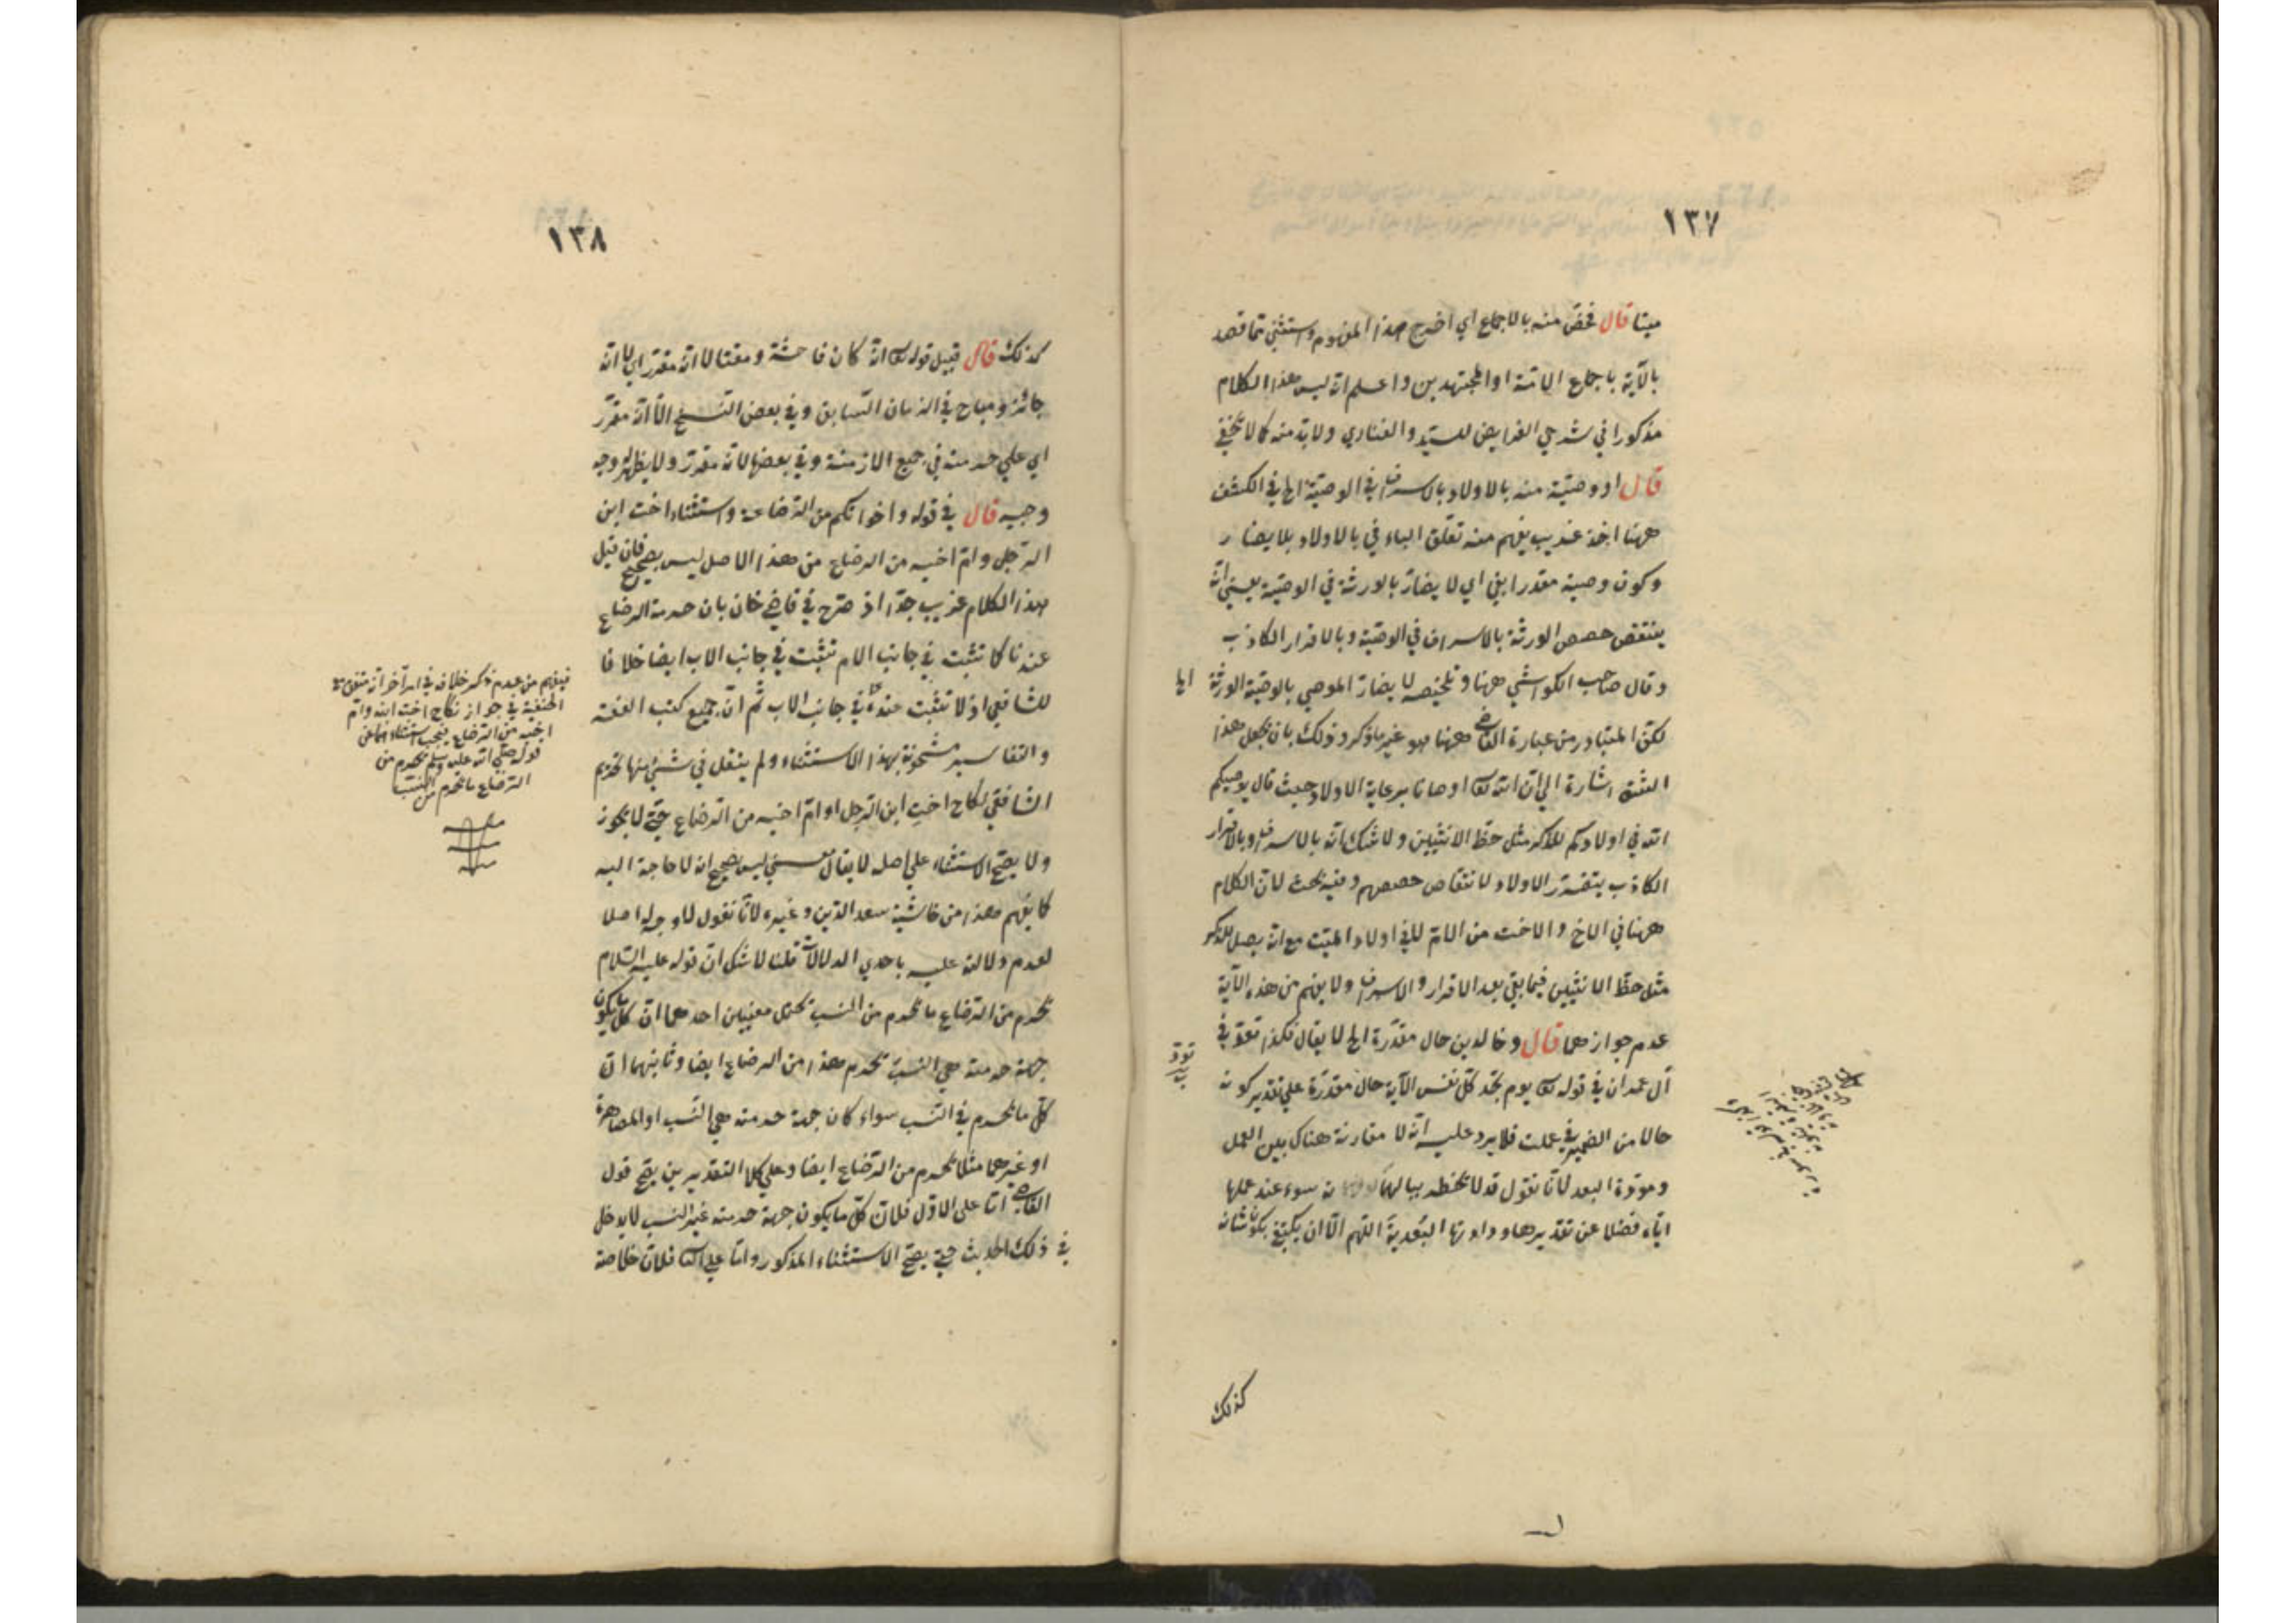 ١٣٧
ميتا قال فخص منه بالاجماع اي اخرج هذا المفهوم واستثني مما قصد
بالآية باجماع الائمة او المجتهدين واعلم انه ليس هذا الكلام
مذكورا في شرحي الفرايض للسيد والفناري ولابد منه كما لا يخفي
قال او وصية منه بالاولاد بالاسراف في الوصية الخ في الكشف
ههنا اخذ غريب يفهم منه تعلق الباء في بالاولاد بلا يضار
وكون وصية مقدرا بفي اي لا يضار بالورثة في الوصية يعني انه
ينتقص حصص الورثة بالاسراف في الوصية وبالاقرار الكاذب
وقال صاحب الكواشي ههنا وتلخيصه لا يضار الموصي بالوصية الورثة الخ
لكن المتبادر من عبارة القاضي ههنا هو غير ما ذكر وذلك بان يجعل هذا
اشارة الي ان الله تعا اوصانا برعاية الاولاد حيث قال يوصيكم
الله في اولادكم للذكر مثل حظ الانثيين ولا شك انه بالاسراف وبالاقرار
الكاذب يتضرر الاولاد لانتقاص حصصهم وفيه بحث لان الكلام
ههنا في الاخ والاخت من الام لا في اولاد الميت مع انه يصل للذكر
مثل حظ الانثيين فيما بقي بعد الاقرار والاسراف ولا يفهم من هذه الآية
عدم جوازهما قال وخالدين حال مقدرة الخ لا يقال فكذا تود في
آل عمران في قوله تعا يوم تجد كل نفس الآية حال مقدرة علي تقدير كونه
حالا من الضمير في عملت فلا يرد عليه انه لا مقارنة هناك بين العمل
ومودة البعد لانا نقول قد لا يخطر ببالها سوء عند عملها
اياه فضلا عن تقديرها ودادتها البعدية اللهم الا ان يكتفي بكون شانه
تود
كذلك
١٣٨
كذلك قال قبيل قوله تعا انه كان فاحشة ومقتا لا انه مقرر اي لا انه
جائز ومباح في الزمان السابق وفي بعض النسخ الا انه مقرر
اي علي حرمته في جميع الازمنة وفي بعضها لانه مقرر ولا يظهر له وجه
وجيه قال في قوله واخواتكم من الرضاعة واستثناء اخت ابن
الرجل وام اخيه من الرضاع من هذا الاصل ليس بصحيح فان قيل
هذا الكلام غريب جدا اذ صرح في قاضي خان بان حرمة الرضاع
عندنا كما تثبت في جانب الام تثبت في جانب الاب ايضا خلافا
للشافعي اذ لا تثبت عنده في جانب الاب ثم ان جميع كتب الفقه
والتفاسير مشحونة بهذا الاستثناء ولم ينقل في شيء منها تحريم
الشافعي نكاح اخت ابن الرجل او ام اخيه من الرضاع حتي لا يجوز
ولا يصح الاستثناء علي اصله لا يقال معني ليس بصحيح انه لا حاجة اليه
كما يفهم هذا من حاشية سعد الدين وغيره لانا نقول لا وجه له اصلا
لعدم دلالته عليه باحدي الدلالات قلنا لا شك ان قوله عليه السلام
يحرم من الرضاع ما يحرم من النسب يحتمل معنيين احدهما ان كل ما يكون
جهة حرمته هي النسب يحرم هذا من الرضاع ايضا وثانيهما ان
كل ما يحرم في النسب سواء كان جهة حرمته هي النسب او المصاهرة
او غيرهما مثلا يحرم من الرضاع ايضا وعلي كلا التقديرين يصح قول
القاضي اما علي الاول فلان كل ما يكون جهة حرمته غير النسب لا يدخل
في ذلك الحديث حتي يصح الاستثناء المذكور واما علي الثا فلان خلاصة
فيفهم من عدم ذكر خلاف في انه متفق
الحنفية في جواز نكاح اخت ابنه وام
اخيه من الرضاع فيجب استثناءهما في
قوله صلي الله عليه وسلم يحرم من
الرضاع ما يحرم من النسب